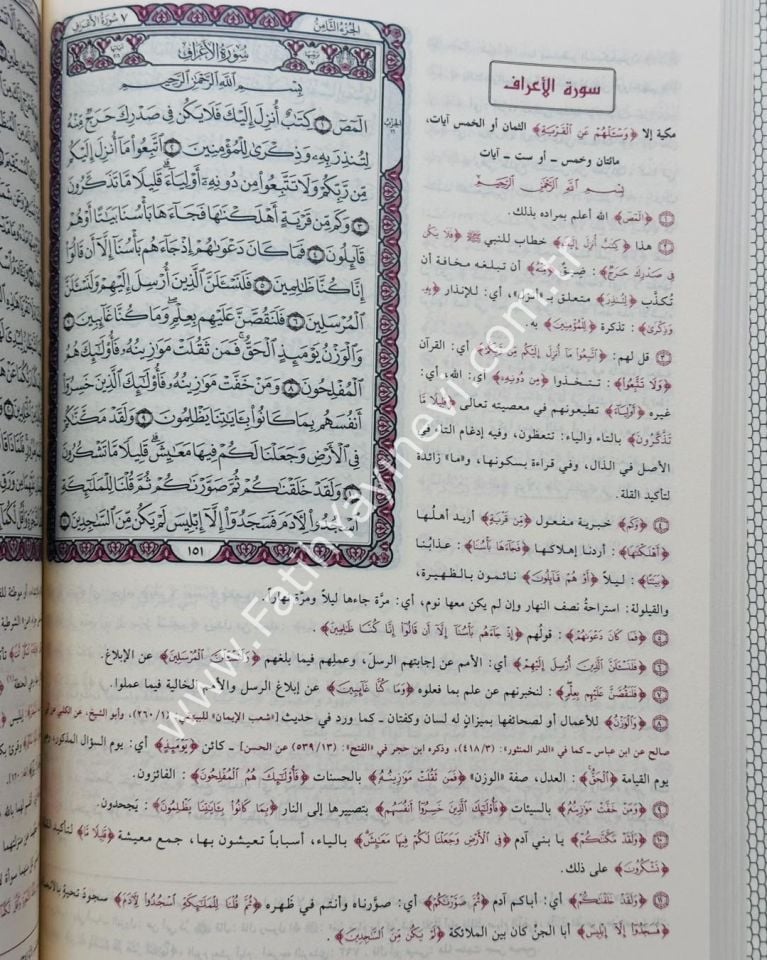 ٧ سورة الأعراف
الجزء الثامن
سورة الأعراف
بسم الله الرحمن الرحيم
الٓمٓصٓ ١ كِتَٰبٌ أُنزِلَ إِلَيْكَ فَلَا يَكُن فِى صَدْرِكَ حَرَجٌ مِّنْهُ
لِتُنذِرَ بِهِۦ وَذِكْرَىٰ لِلْمُؤْمِنِينَ ٢ ٱتَّبِعُوا۟ مَآ أُنزِلَ إِلَيْكُم
مِّن رَّبِّكُمْ وَلَا تَتَّبِعُوا۟ مِن دُونِهِۦٓ أَوْلِيَآءَ ۗ قَلِيلًا مَّا تَذَكَّرُونَ
٣ وَكَم مِّن قَرْيَةٍ أَهْلَكْنَٰهَا فَجَآءَهَا بَأْسُنَا بَيَٰتًا أَوْ هُمْ
قَآئِلُونَ ٤ فَمَا كَانَ دَعْوَىٰهُمْ إِذْ جَآءَهُم بَأْسُنَآ إِلَّآ أَن قَالُوٓا۟
إِنَّا كُنَّا ظَٰلِمِينَ ٥ فَلَنَسْـَٔلَنَّ ٱلَّذِينَ أُرْسِلَ إِلَيْهِمْ وَلَنَسْـَٔلَنَّ
ٱلْمُرْسَلِينَ ٦ فَلَنَقُصَّنَّ عَلَيْهِم بِعِلْمٍ ۖ وَمَا كُنَّا غَآئِبِينَ ٧
وَٱلْوَزْنُ يَوْمَئِذٍ ٱلْحَقُّ ۚ فَمَن ثَقُلَتْ مَوَٰزِينُهُۥ فَأُو۟لَٰٓئِكَ هُمُ
ٱلْمُفْلِحُونَ ٨ وَمَنْ خَفَّتْ مَوَٰزِينُهُۥ فَأُو۟لَٰٓئِكَ ٱلَّذِينَ خَسِرُوٓا۟
أَنفُسَهُم بِمَا كَانُوا۟ بِـَٔايَٰتِنَا يَظْلِمُونَ ٩ وَلَقَدْ مَكَّنَّٰكُمْ
فِى ٱلْأَرْضِ وَجَعَلْنَا لَكُمْ فِيهَا مَعَٰيِشَ ۗ قَلِيلًا مَّا تَشْكُرُونَ
١٠ وَلَقَدْ خَلَقْنَٰكُمْ ثُمَّ صَوَّرْنَٰكُمْ ثُمَّ قُلْنَا لِلْمَلَٰٓئِكَةِ
ٱسْجُدُوا۟ لِءَادَمَ فَسَجَدُوٓا۟ إِلَّآ إِبْلِيسَ لَمْ يَكُن مِّنَ ٱلسَّٰجِدِينَ ١١
١٥١
سورة الأعراف
مكية إلا ﴿وَسْـَٔلْهُمْ عَنِ ٱلْقَرْيَةِ﴾ الثمان أو الخمس آيات،
مائتان وخمس ـ أو ست ـ آيات
بسم الله الرحمن الرحيم
١ ﴿الٓمٓصٓ﴾ الله أعلم بمراده بذلك.
٢ هذا ﴿كِتَٰبٌ أُنزِلَ إِلَيْكَ﴾ خطاب للنبي ﷺ ﴿فَلَا يَكُن
فِى صَدْرِكَ حَرَجٌ﴾: ضِيقٌ ﴿مِّنْهُ﴾ أن تبلغه مخافة أن
تُكذَّب ﴿لِتُنذِرَ﴾ متعلق بـ«أُنزل»، أي: للإنذار ﴿بِهِۦ
وَذِكْرَىٰ﴾: تذكرة ﴿لِلْمُؤْمِنِينَ﴾ به.
٣ قل لهم: ﴿ٱتَّبِعُوا۟ مَآ أُنزِلَ إِلَيْكُم مِّن رَّبِّكُمْ﴾ أي: القرآن
﴿وَلَا تَتَّبِعُوا۟﴾: تتخذوا ﴿مِن دُونِهِۦٓ﴾ أي: الله، أي:
غيره ﴿أَوْلِيَآءَ﴾ تطيعونهم في معصيته تعالى ﴿قَلِيلًا مَّا
تَذَكَّرُونَ﴾ بالتاء والياء: تتعظون، وفيه إدغام التاء في
الأصل في الذال، وفي قراءة بسكونها، و«ما» زائدة
لتأكيد القلة.
٤ ﴿وَكَم﴾ خبرية مفعول ﴿مِّن قَرْيَةٍ﴾ أريد أهلُها
﴿أَهْلَكْنَٰهَا﴾: أردنا إهلاكها ﴿فَجَآءَهَا بَأْسُنَا﴾: عذابنا
﴿بَيَٰتًا﴾: ليلاً ﴿أَوْ هُمْ قَآئِلُونَ﴾ نائمون بالظهيرة،
والقيلولة: استراحةُ نصف النهار وإن لم يكن معها نوم، أي: مرّة جاءها ليلاً ومرّة نهاراً.
٥ ﴿فَمَا كَانَ دَعْوَىٰهُمْ﴾: قولُهم ﴿إِذْ جَآءَهُم بَأْسُنَآ إِلَّآ أَن قَالُوٓا۟ إِنَّا كُنَّا ظَٰلِمِينَ﴾.
٦ ﴿فَلَنَسْـَٔلَنَّ ٱلَّذِينَ أُرْسِلَ إِلَيْهِمْ﴾ أي: الأمم عن إجابتهم الرسل، وعملِهم فيما بلغهم ﴿وَلَنَسْـَٔلَنَّ ٱلْمُرْسَلِينَ﴾ عن الإبلاغ.
٧ ﴿فَلَنَقُصَّنَّ عَلَيْهِم بِعِلْمٍ﴾: لنخبرنهم عن علم بما فعلوه ﴿وَمَا كُنَّا غَآئِبِينَ﴾ عن إبلاغ الرسل والأمم الخالية فيما عملوا.
٨ ﴿وَٱلْوَزْنُ﴾ للأعمال أو لصحائفها بميزانٍ له لسان وكفتان ـ كما ورد في حديث [«شعب الإيمان» للبيهقي: (١/٢٦٠)، وأبو الشيخ، عن الكلبي عن أبي
صالح عن ابن عباس ـ كما في «الدر المنثور»: (٣/٤١٨)، وذكره ابن حجر في «الفتح»: (١٣/٥٣٩) عن الحسن] ـ كائن ﴿يَوْمَئِذٍ﴾ أي: يوم السؤال المذكور، وهو
يوم القيامة ﴿ٱلْحَقُّ﴾: العدل، صفة «الوزن» ﴿فَمَن ثَقُلَتْ مَوَٰزِينُهُۥ﴾ بالحسنات ﴿فَأُو۟لَٰٓئِكَ هُمُ ٱلْمُفْلِحُونَ﴾: الفائزون.
٩ ﴿وَمَنْ خَفَّتْ مَوَٰزِينُهُۥ﴾ بالسيئات ﴿فَأُو۟لَٰٓئِكَ ٱلَّذِينَ خَسِرُوٓا۟ أَنفُسَهُم﴾ بتصييرها إلى النار ﴿بِمَا كَانُوا۟ بِـَٔايَٰتِنَا يَظْلِمُونَ﴾: يجحدون.
١٠ ﴿وَلَقَدْ مَكَّنَّٰكُمْ﴾ يا بني آدم ﴿فِى ٱلْأَرْضِ وَجَعَلْنَا لَكُمْ فِيهَا مَعَٰيِشَ﴾ بالياء، أسباباً تعيشون بها، جمع معيشة ﴿قَلِيلًا مَّا﴾ لتأكيد القلة
﴿تَشْكُرُونَ﴾ على ذلك.
١١ ﴿وَلَقَدْ خَلَقْنَٰكُمْ﴾ أي: أباكم آدم ﴿ثُمَّ صَوَّرْنَٰكُمْ﴾ أي: صوّرناه وأنتم في ظهره ﴿ثُمَّ قُلْنَا لِلْمَلَٰٓئِكَةِ ٱسْجُدُوا۟ لِءَادَمَ﴾ سجودَ تحيةٍ بالانحناء
﴿فَسَجَدُوٓا۟ إِلَّآ إِبْلِيسَ﴾ أبا الجنّ كان بين الملائكة ﴿لَمْ يَكُن مِّنَ ٱلسَّٰجِدِينَ﴾.
www.Fatihyayinevi.com.tr